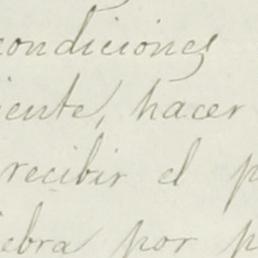 condiciones
iente, hacer
recibir el p
ebra por p